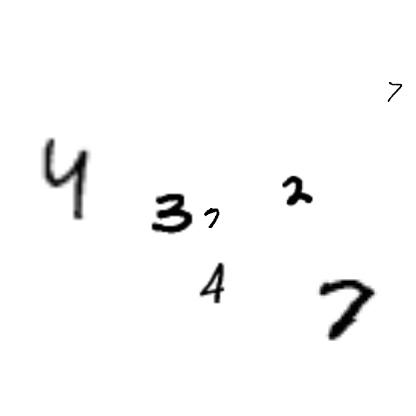 7
4 3 7 2
4 7